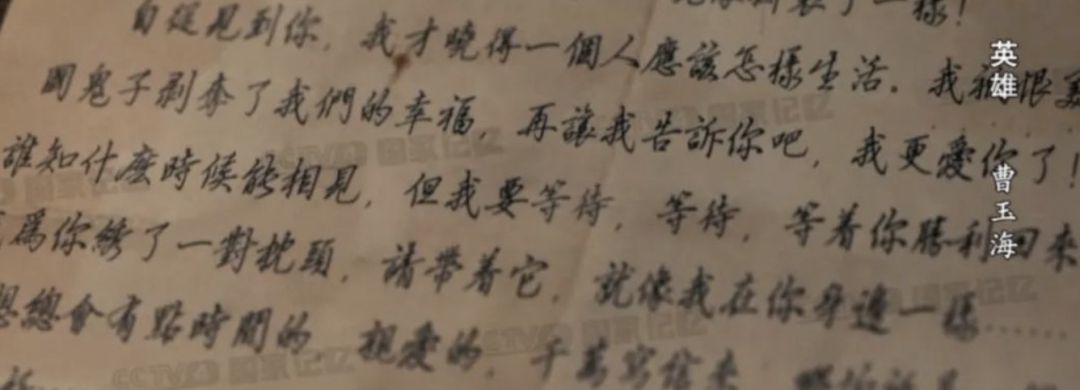 一樣！
自從見到你，我才曉得一個人應該怎樣生活。我
國鬼子剥奪了我們的幸福，再讓我告訴你吧，我更愛你了！
誰知什麽時候能相見，但我要等待，等待，等着你勝利回來
爲你綉了一對枕頭，請帶着它，就像我在你身邊一樣……
想總會有點時間的 親愛的，千萬寫信來
英雄
曹玉海